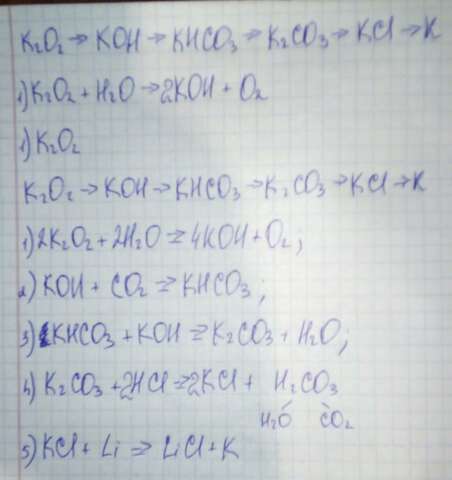 K₂O₂ → KOH → KHCO₃ → K₂CO₃ → KCl → K
1) K₂O₂ + H₂O → 2KOH + O₂
1) K₂O₂
K₂O₂ → KOH → KHCO₃ → K₂CO₃ → KCl → K
1) 2K₂O₂ + 2H₂O = 4KOH + O₂;
2) KOH + CO₂ = KHCO₃;
3) KHCO₃ + KOH = K₂CO₃ + H₂O;
4) K₂CO₃ + 2HCl = 2KCl + H₂CO₃
H₂O CO₂
5) KCl + Li => LiCl + K